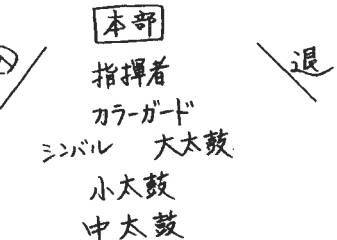 本部
指揮者
退
カラーガード
シンバル 大太鼓
小太鼓
中太鼓